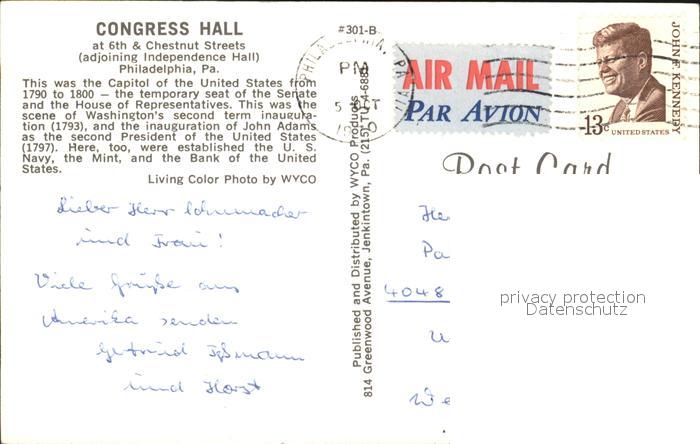 CONGRESS HALL
at 6th & Chestnut Streets
(adjoining Independence Hall)
Philadelphia, Pa.
This was the Capitol of the United States from
1790 to 1800 — the temporary seat of the Senate
and the House of Representatives. This was the
scene of Washington's second term inaugura-
tion (1793), and the inauguration of John Adams
as second President of the United States
(1797). Here, too, were established the U. S.
Navy, the Mint, and the Bank of the United
States.
Living Color Photo by WYCO
Lieber Herr Schumacher
und Frau!
Viele Grüße aus
Amerika senden
und Horst
#301-B
Published and Distributed by WYCO Products
814 Greenwood Avenue, Jenkintown, Pa. (215) TU
PHILADELPHIA, PA
PM
5 OCT
AIR MAIL
PAR AVION
JOHN F. KENNEDY
13c UNITED STATES
Post Card
He
Pa
4048
U
We
privacy protection
Datenschutz